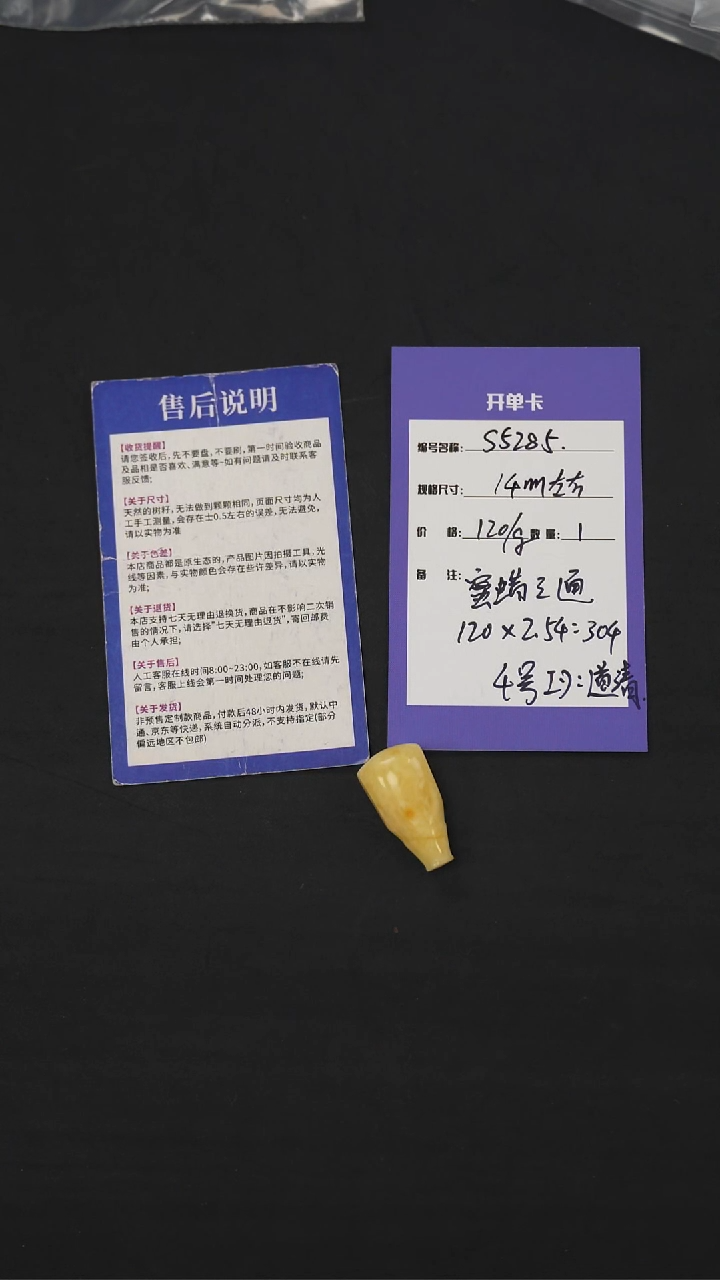 售后说明
【收货提醒】
请您签收后,先不要盘,不要刷,第一时间验收商品
及品相是否喜欢、满意等~如有问题请及时联系客
服反馈;
【关于尺寸】
天然的树籽,无法做到颗颗相同,页面尺寸均为人
工手工测量,会存在士0.5左右的误差,无法避免,
请以实物为准
【关于色差】
本店商品都是原生态的,产品图片因拍摄工具、光
线等因素,与实物颜色会存在些许差异,请以实物
为准;
【关于退货】
本店支持七天无理由退换货,商品在不影响二次销
售的情况下,请选择"七天无理由退货",寄回邮费
由个人承担;
【关于售后】
人工客服在线时间8:00~23:00,如客服不在线请先
留言,客服上线会第一时间处理您的问题;
【关于发货】
非预售定制款商品,付款后48小时内发货,默认中
通、京东等快递,系统自动分派,不支持指定(部分
偏远地区不包邮)
开单卡
编号名称: S5285.
规格尺寸: 14m左右
价 格: 120/g 数量: 1
备 注: 蜜蜡三通
120×2.54=304
4号ID:道清